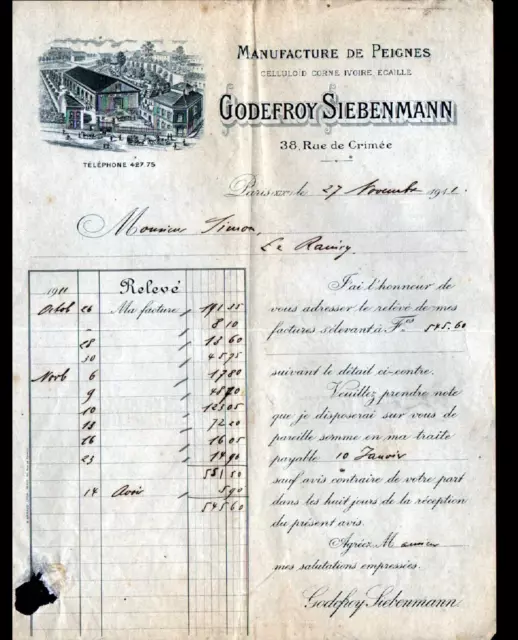 MANUFACTURE DE PEIGNES
CELLULOÏD CORNE IVOIRE, ECAILLE
GODEFROY SIEBENMANN
38, Rue de Crimée
TÉLÉPHONE 427.75
Paris XIX le 27 Novembre 1911.
Monsieur Simon,
Le Raincy.
1911 Relevé
Octob 26 Ma facture 191 55
" 8 10
28 " 13 60
30 " 45 75
Novb 6 " 17 80
9 "
10 " 123 05
13 " 72 20
16 " 16 05
23 " 14 90
551 50
14 Avoir " 5 90
545 60
J'ai l'honneur de
vous adresser le relevé de mes
factures s'élevant à Fcs 545.60
suivant le détail ci-contre.
Veuillez prendre note
que je disposerai sur vous de
pareille somme en ma traite
payable 10 Janvier
sauf avis contraire de votre part
dans les huit jours de la réception
du présent avis.
Agréez, Monsieur
mes salutations empressées.
Godefroy Siebenmann.